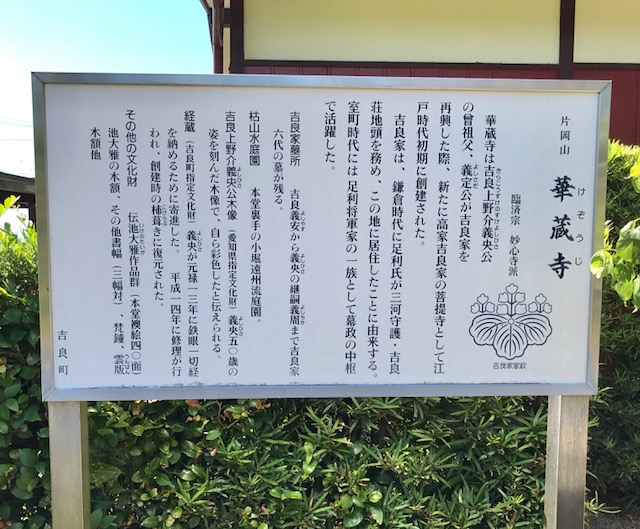 片岡山
華蔵寺
けぞうじ
臨済宗 妙心寺派
吉良家家紋
華蔵寺は吉良上野介義央公
きらこうづけのすけよしひさ
の曽祖父、義定公が吉良家を
よしさだ
再興した際、新たに高家吉良家の菩提寺として江
戸時代初期に創建された。
吉良家は、鎌倉時代に足利氏が三河守護・吉良
荘地頭を務め、この地に居住したことに由来する。
室町時代には足利将軍家の一族として幕政の中枢
で活躍した。
吉良家墓所 吉良義安から義央の継嗣義周まで吉良家
よしやす
よしひさ
よしちか
六代の墓が残る。
枯山水庭園 本堂裏手の小堀遠州流庭園。
吉良上野介義央公木像(愛知県指定文化財)義央五〇歳の
よしひさ
よしひさ
姿を刻んだ木像で、自ら彩色したと伝えられる。
経蔵(吉良町指定文化財)義央が元禄一三年に鉄眼一切経
よしひさ
を納めるために寄進した。 平成一四年に修理が行
われ、創建時の杮葺きに復元された。
こけらぶ
その他の文化財 伝池大雅作品群(本堂襖絵四〇面)
いけのたいが
池大雅の木額、その他書幅(三幅対)、梵鐘、雲版
うんばん
木額他
吉良町